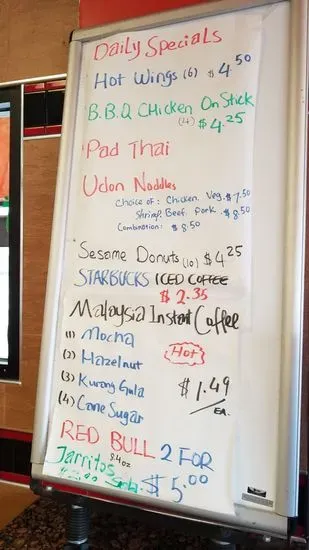 Daily Specials
Hot Wings (6) $4.50
B.B.Q Chicken On Stick
(4) $4.25
Pad Thai
Udon Noddles
Choice of: Chicken. Veg. $7.50
Shrimp. Beef. Pork. $8.50
Combination: $8.50
Sesame Donuts (10) $4.25
STARBUCKS ICED COFFEE
$2.35
Malaysia Instant Coffee
(1) Mocha
Hot
(2) Hazelnut
(3) Kurang Gula
$1.49
EA.
(4) Cane Sugar
RED BULL 2 FOR
8.4oz
Jarritos $5.00